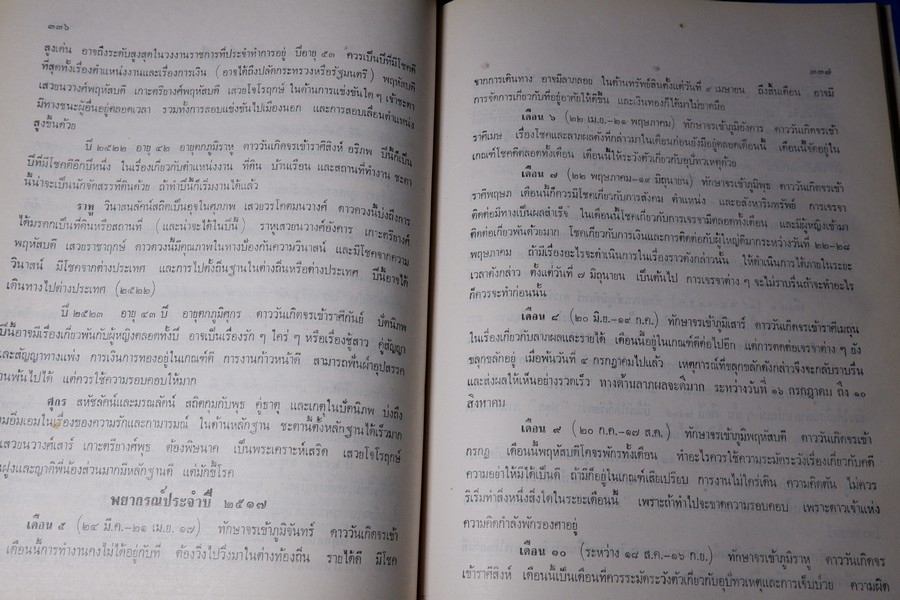 ๓๓๖
สูงเด่น อาจถึงระดับสูงสุดในวงงานราชการที่ประจำทำการอยู่ ปีอายุ ๕๓ ควรเป็นปีที่มีโชคดี
ที่สุดทั้งเรื่องตำแหน่งงานและเรื่องการเงิน (อาจได้ถึงปลัดกระทรวงหรือรัฐมนตรี) พฤหัสบดี
เสวยนวางศ์พฤหัสบดี เกาะตรียางค์พฤหัสบดี เสวยโจโรฤกษ์ ในด้านการแข่งขันใด ๆ เจ้าชะตา
มีทางชนะผู้อื่นอยู่ตลอดเวลา รวมทั้งการสอบแข่งขันไปเมืองนอก และการสอบเลื่อนตำแหน่ง
สูงขึ้นด้วย
ปี ๒๕๒๒ อายุ ๔๒ อายุตกภูมิราหู ดาววันเกิดจรเข้าราศีสิงห์ อริภพ ปีนี้ก็เป็น
ปีที่มีโชคดีอีกปีหนึ่ง ในเรื่องเกี่ยวกับตำแหน่งงาน ที่ดิน บ้านเรือน และสถานที่ทำงาน ชะตา
นี้น่าจะเป็นนักจัดสรรที่ดินด้วย ถ้าทำปีนี้ก็เริ่มงานได้แล้ว
ราหู วินาสนลัคน์สถิตเป็นอุจในศุภภพ เสวยวรโคตมนวางศ์ ดาวดวงนี้บ่งถึงการ
ได้มรดกเป็นที่ดินหรือสถานที่ (และน่าจะได้ในปีนี้) ราหูเสวยนวางศ์อังคาร เกาะตรียางค์
พฤหัสบดี เสวยราชาฤกษ์ ดาวดวงนี้มีคุณภาพในทางป้องกันความวินาสน์ และมีโชคจากความ
วินาสน์ มีโชคจากต่างประเทศ และการไปตั้งถิ่นฐานในต่างถิ่นหรือต่างประเทศ ปีนี้อาจได้
เดินทางไปต่างประเทศ (๒๕๒๒)
ปี ๒๕๒๓ อายุ ๔๓ ปี อายุตกภูมิศุกร ดาววันเกิดจรเข้าราศีกันย์ ปัตนิภพ
ปีนี้อาจมีเรื่องเกี่ยวพันกับผู้หญิงตลอดทั้งปี อาจเป็นเรื่องรัก ๆ ใคร่ ๆ หรือเรื่องชู้สาว คู่สัญญา
และสัญญาทางแพ่ง การเงินการทองอยู่ในเกณฑ์ดี การงานก้าวหน้าดี สามารถพ้นฝ่าอุปสรรค
พ้นไปได้ แต่ควรใช้ความรอบคอบให้มาก
ศุกร สหัชลัคน์และมรณลัคน์ สถิตกุมกับพุธ คู่ธาตุ และเกตุในปัตนิภพ บ่งถึง
ในเรื่องของความรักและกามารมณ์ ในด้านหลักฐาน ชะตานี้ตั้งหลักฐานได้เร็วมาก
เสวยนวางศ์เสาร์ เกาะตรียางศ์พุธ ต้องพิษนาค เป็นพระเคราะห์เสริด เสวยโจโรฤกษ์
ฝูงและญาติพี่น้องส่วนมากมีหลักฐานดี แต่มักขี้โรค
พยากรณ์ประจำปี ๒๕๑๗
เดือน ๕ (๒๔ มี.ค.–๒๑ เม.ย. ๑๗) ทักษาจรเข้าภูมิจันทร์ ดาววันเกิดจรเข้า
เดือนนี้การทำงานคงไม่ได้อยู่กับที่ ต้องวิ่งไปวิ่งมาในต่างท้องถิ่น รายได้ดี มีโชค
๓๓๗
จากการเดินทาง อาจมีลาภลอย ในด้านทรัพย์สินตั้งแต่วันที่ ๙ เมษายน ถึงสิ้นเดือน อาจมี
การจัดการเกี่ยวกับที่อยู่อาศัยให้ดีขึ้น และเงินทองก็ได้มาไม่ขาดมือ
เดือน ๖ (๒๒ เม.ย.–๒๑ พฤษภาคม) ทักษาจรเข้าภูมิอังคาร ดาววันเกิดจรเข้า
ราศีเมษ เรื่องโชคและลาภผลดังที่กล่าวมาในเดือนก่อนยังมีอยู่ตลอดเดือนนี้ เดือนนี้จัดอยู่ใน
เกณฑ์โชคดีตลอดทั้งเดือน เดือนนี้ให้ระวังตัวเกี่ยวกับอุบัติเหตุด้วย
เดือน ๗ (๒๒ พฤษภาคม–๑๙ มิถุนายน) ทักษาจรเข้าภูมิพุธ ดาววันเกิดจรเข้า
ราศีพฤษภ เดือนนี้ก็ควรมีโชคเกี่ยวกับการสังคม ตำแหน่ง และอสังหาริมทรัพย์ การเจรจา
ติดต่อมีทางเป็นผลสำเร็จ ในเดือนนี้โชคเกี่ยวกับการเจรจามีตลอดทั้งเดือน และมีผู้หญิงเข้ามา
ติดต่อเกี่ยวพันด้วยมาก โชคเกี่ยวกับการเงินและการติดต่อกับผู้ใหญ่ดีมากระหว่างวันที่ ๒๒–๒๘
พฤษภาคม ถ้ามีเรื่องอะไรจะดำเนินการในเรื่องราวดังกล่าวนั้น ให้ดำเนินการได้ภายในระยะ
เวลาดังกล่าว ตั้งแต่วันที่ ๗ มิถุนายน เป็นต้นไป การเจรจาต่าง ๆ จะไม่ราบรื่นถ้าจะทำอะไร
ก็ควรจะทำก่อนนั้น
เดือน ๘ (๒๐ มิ.ย.–๑๙ ก.ค.) ทักษาจรเข้าภูมิเสาร์ ดาววันเกิดจรเข้าราศีเมถุน
ในเรื่องเกี่ยวกับลาภผลและรายได้ เดือนนี้อยู่ในเกณฑ์ดีต่อไปอีก แต่การติดต่อเจรจาต่าง ๆ ยัง
ขลุกขลักอยู่ เมื่อพ้นวันที่ ๔ กรกฎาคมไปแล้ว เหตุการณ์ที่ขลุกขลักดังกล่าวจึงจะกลับราบรื่น
และส่งผลให้เห็นอย่างรวดเร็ว ทางด้านลาภผลจะดีมาก ระหว่างวันที่ ๑๖ กรกฎาคม ถึง ๑๐
สิงหาคม
เดือน ๙ (๒๐ ก.ค.–๑๗ ส.ค.) ทักษาจรเข้าภูมิพฤหัสบดี ดาววันเกิดจรเข้า
กรกฎ เดือนนี้พฤหัสบดีโคจรพักร์ทั้งเดือน ทำอะไรควรใช้ความระมัดระวังเรื่องเกี่ยวกับคดี
ความอย่าให้มีได้เป็นดี ถ้ามีก็อยู่ในเกณฑ์เสียเปรียบ การงานไม่ใคร่เดิน ความคิดตัน ไม่ควร
ริเริ่มทำสิ่งหนึ่งสิ่งใดในระยะเดือนนี้ เพราะถ้าทำไปจะขาดความรอบคอบ เพราะดาวเจ้าแห่ง
ความคิดกำลังพักรองศาอยู่
เดือน ๑๐ (ระหว่าง ๑๘ ส.ค.–๑๖ ก.ย.) ทักษาจรเข้าภูมิราหู ดาววันเกิดจร
เข้าราศีสิงห์ เดือนนี้เป็นเดือนที่ควรระมัดระวังตัวเกี่ยวกับอุบัทวเหตุและการเจ็บป่วย ความผิด